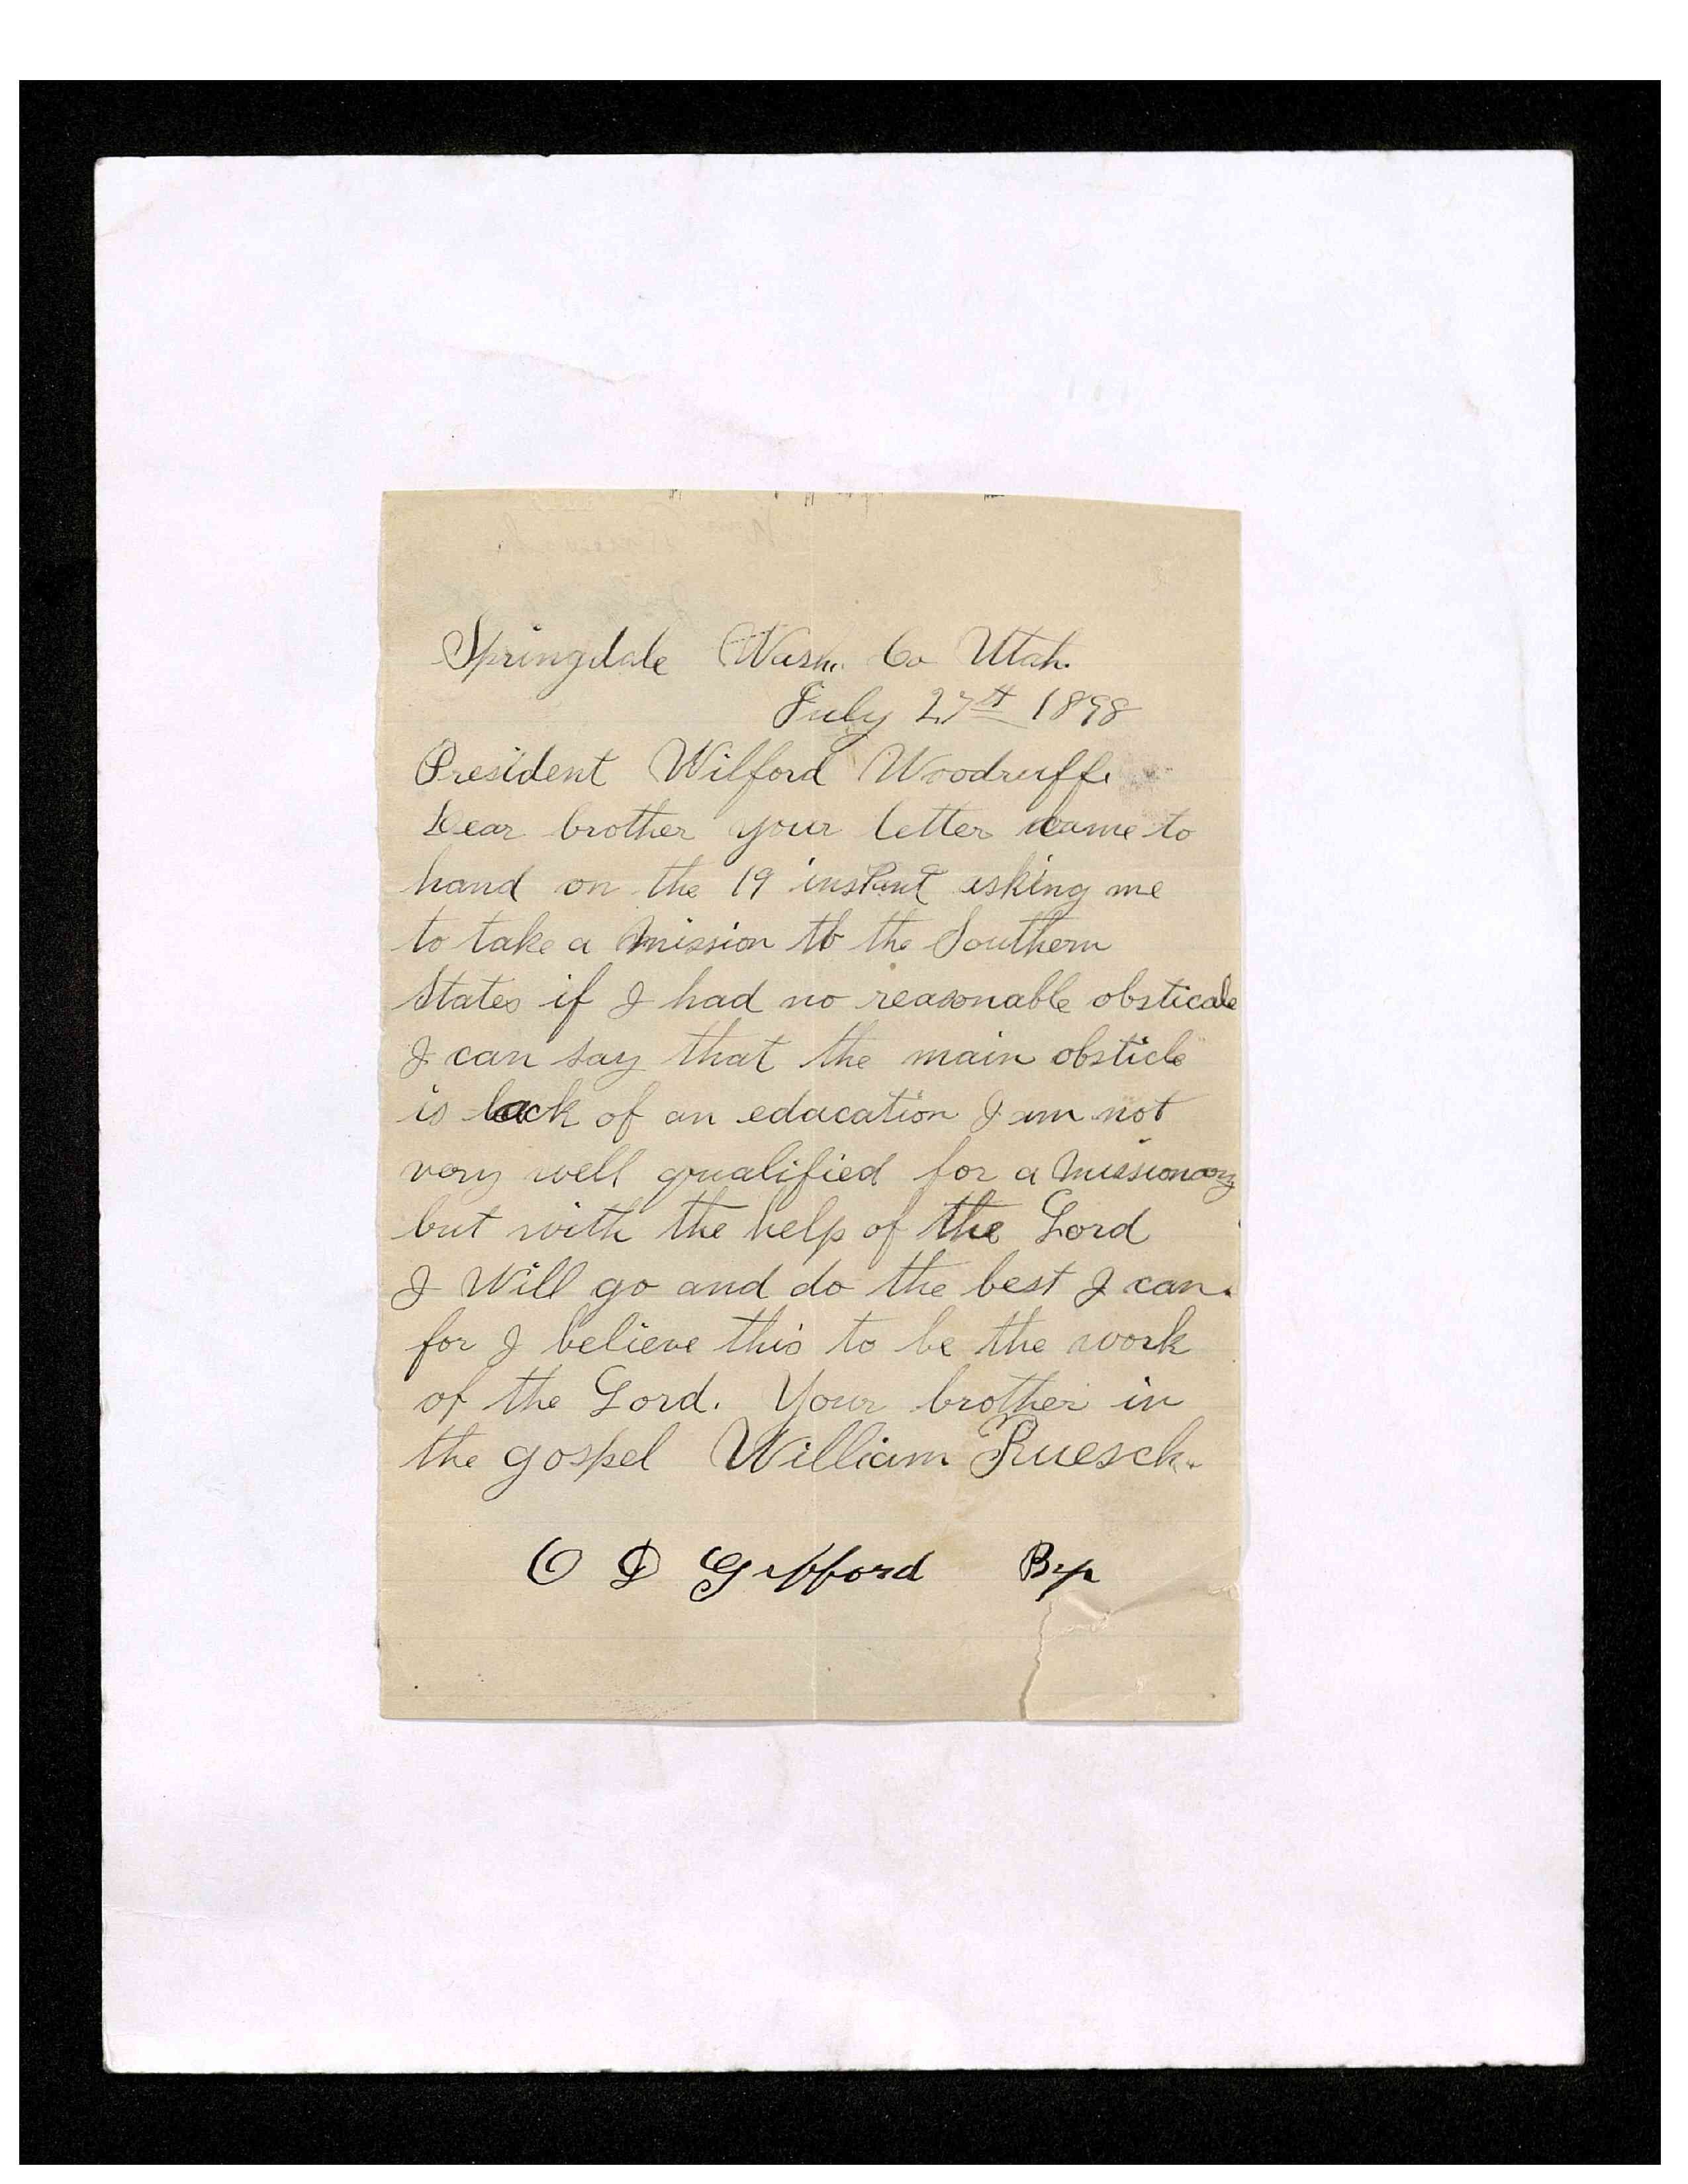 Springdale Wash. Co Utah.
July 27th 1898
President Wilford Woodruff.
Dear brother your letter came to
hand on the 19 instant asking me
to take a mission to the Southern
States if I had no reasonable obsticale
I can say that the main obsticle
is lack of an edacation I am not
very well qualified for a missionary
but with the help of the Lord
I Will go and do the best I can.
for I believe this to be the work
of the Lord. Your brother in
the gospel William Ruesch.
O D Gifford Bp